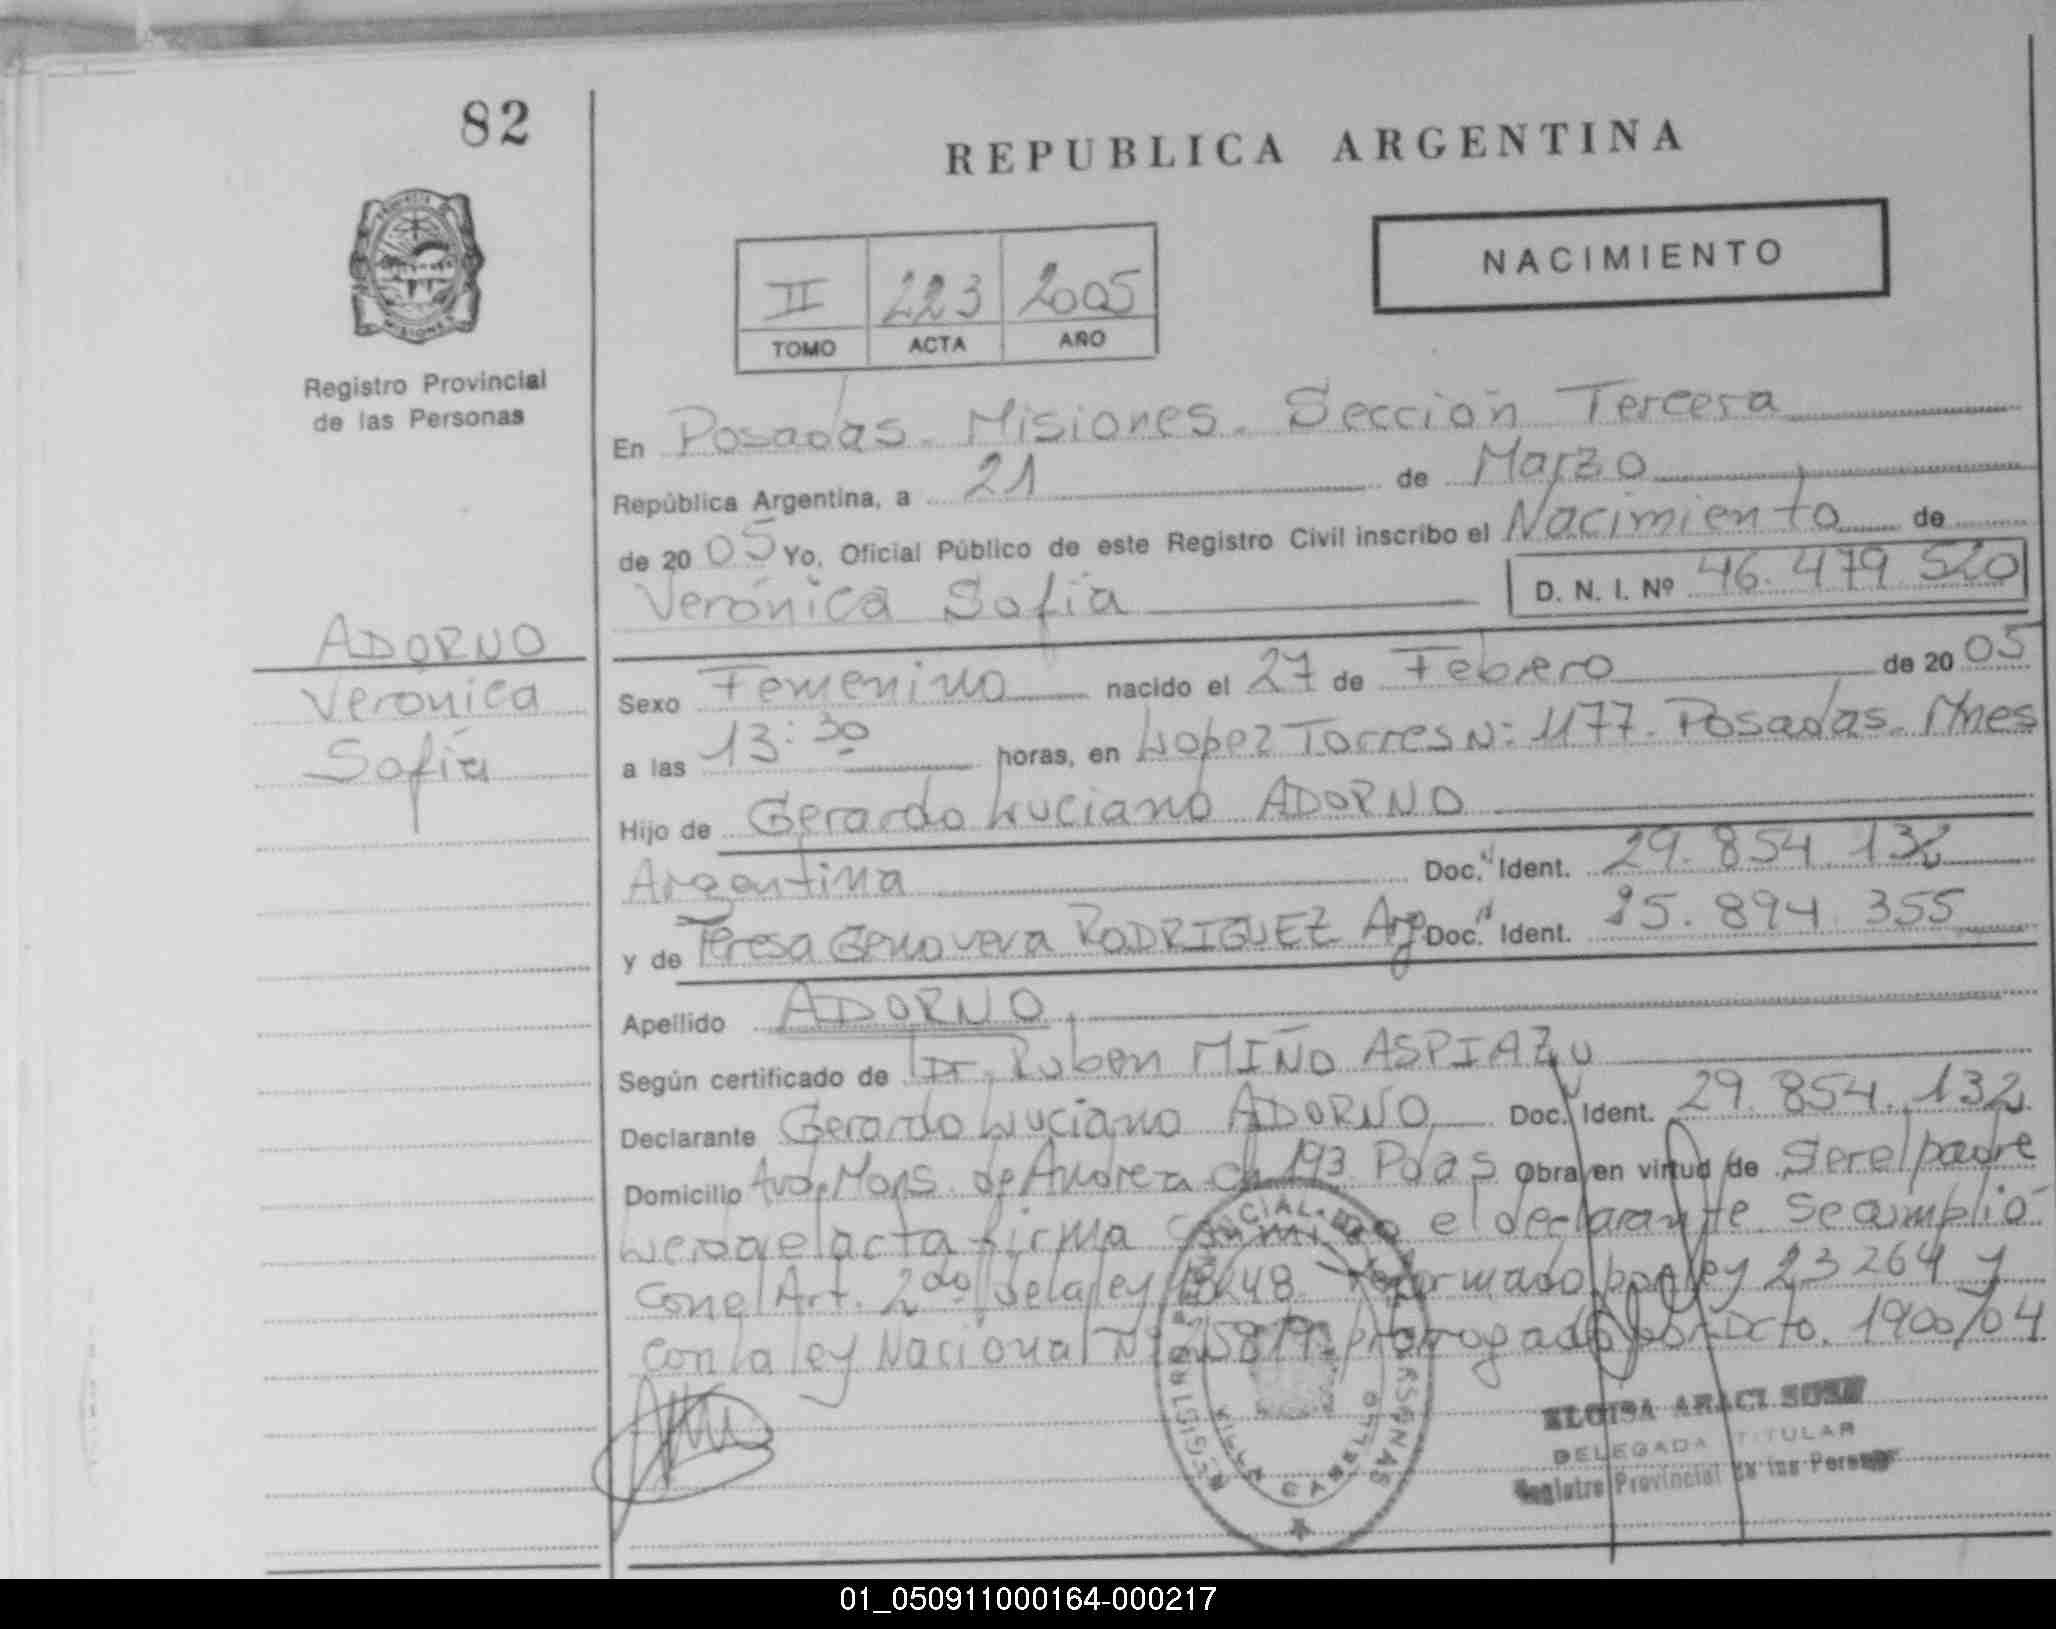 82
REPUBLICA ARGENTINA
NACIMIENTO
II 223 2005
TOMO ACTA AÑO
PROVINCIA
MISIONES
Registro Provincial
de las Personas
En Posadas. Misiones. Sección Tercera
República Argentina, a 21 de Marzo
de 2005 Yo, Oficial Público de este Registro Civil inscribo el Nacimiento de
Verónica Sofía D. N. I. Nº 46.479.520
ADORNO
Verónica
Sofía
Sexo Femenino nacido el 27 de Febrero de 2005
a las 13:30 horas, en Lopez Torres N: 1177. Posadas. Mnes
Hijo de Gerardo Luciano ADORNO
Argentina Doc. Ident. 29.854.132
y de Teresa Genoveva RODRIGUEZ Arg Doc. Ident. 25.894.355
Apellido ADORNO
Según certificado de Dr. Ruben MIÑO ASPIAZU
Declarante Gerardo Luciano ADORNO Doc. Ident. 29.854.132
Domicilio Avda. Mons. de Andrea ch 193 Pdas Obra en virtud de ser el padre
Leída el acta firma conmigo el declarante. Se cumplió
con el Art. 2do de la ley 18248 reformado por ley 23264 y
con la ley Nacional Nº 25819 prorrogado por Dcto. 1900/04
VILLA CABELLO
ELOISA ARACI
DELEGADA TITULAR
Registro Provincial de las Personas
01_050911000164-000217